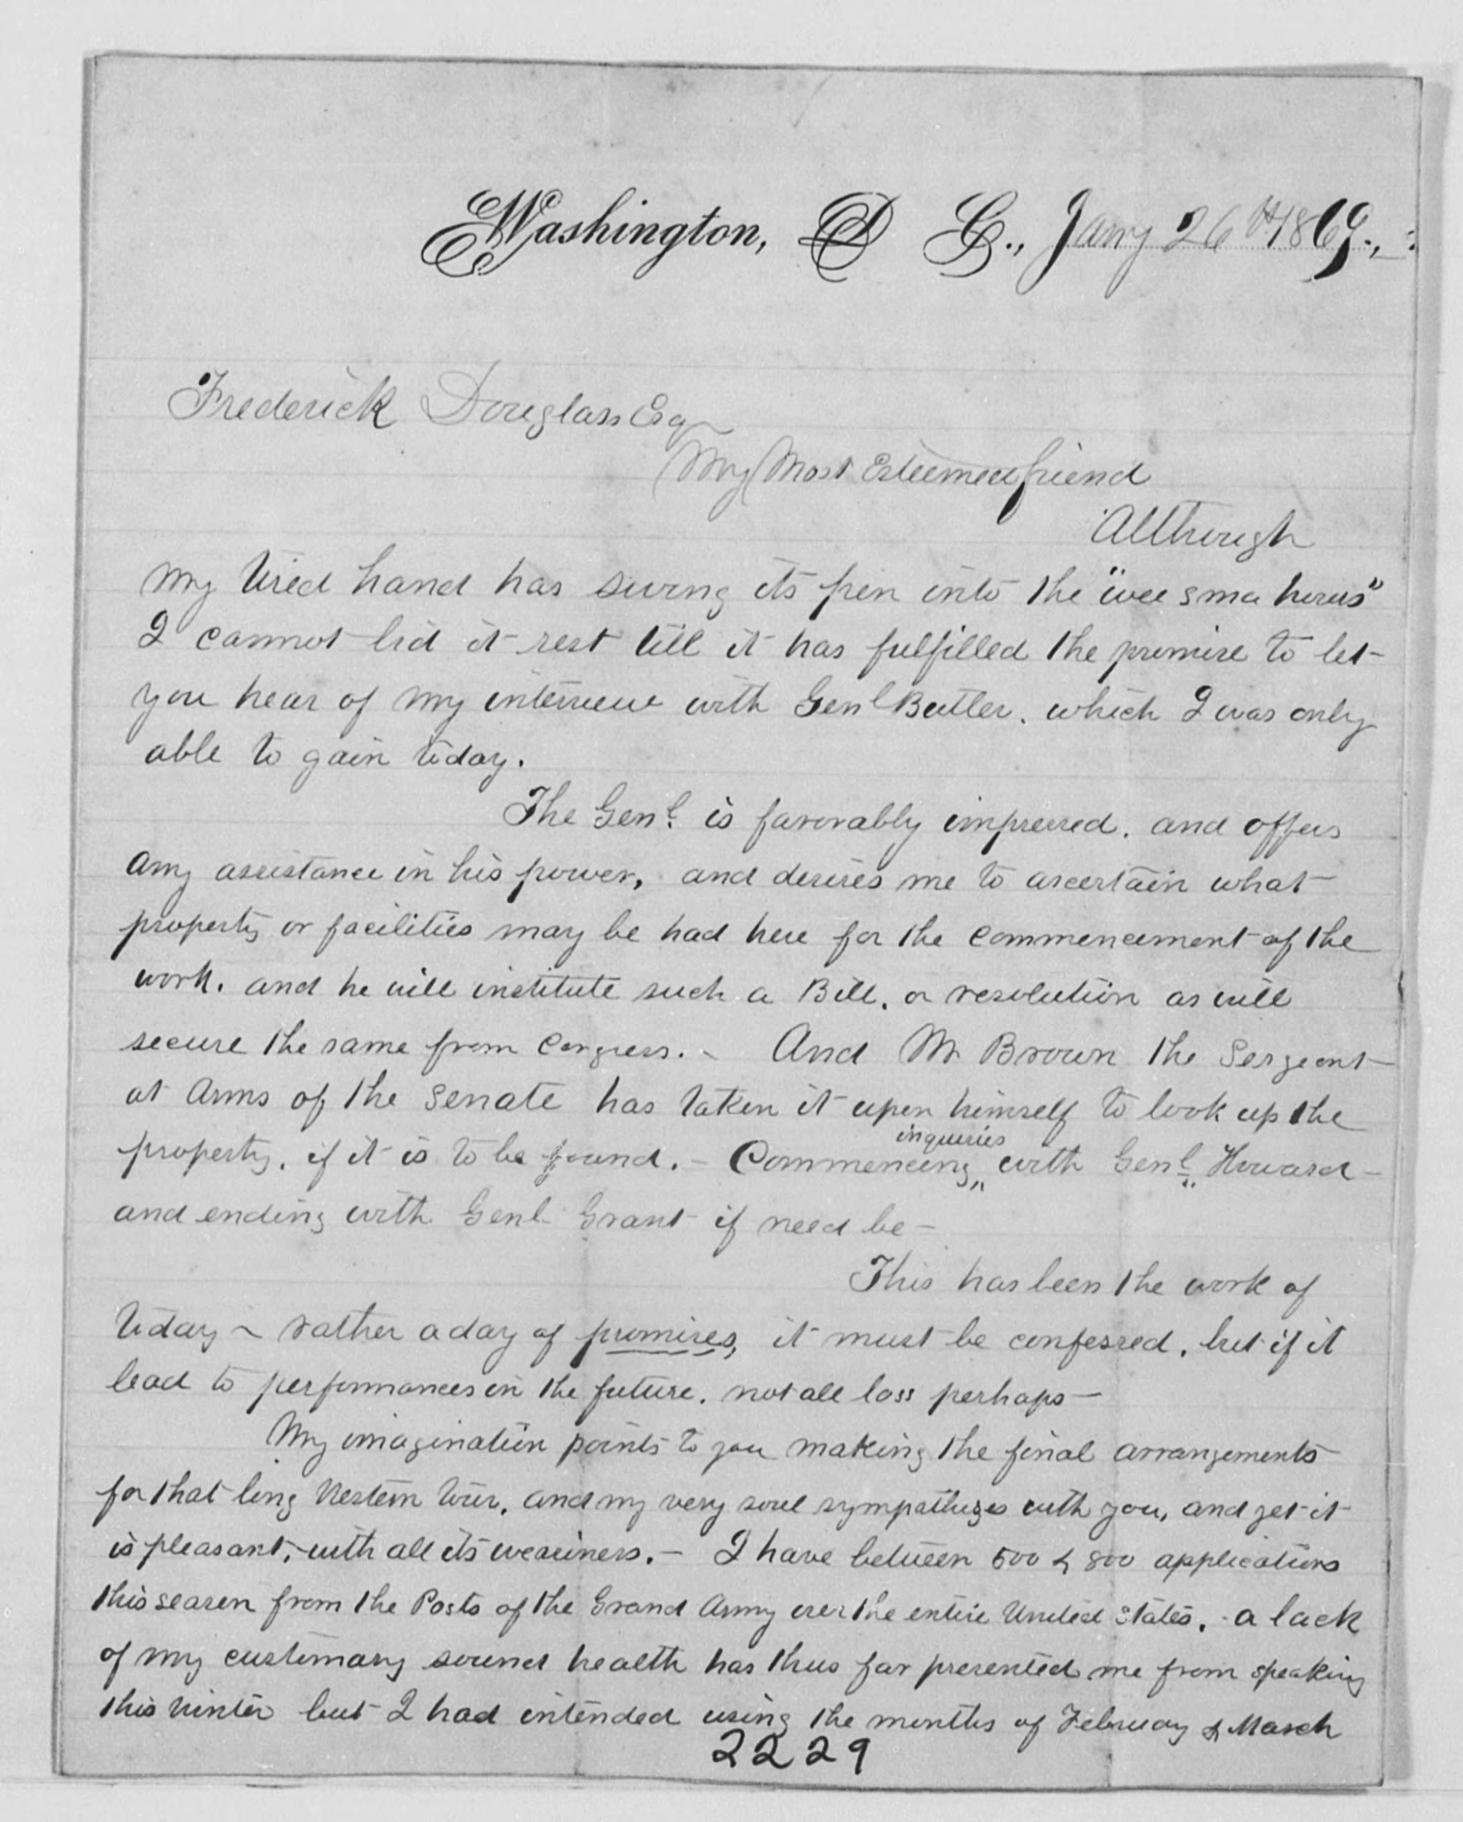 Washington, D. C., Jany 26th 1869.,
Frederick Douglass Esq
My Most Esteemed friend
Although
my tired hand has swung its pen into the "wee sma hours"
I cannot bid it rest till it has fulfilled the promise to let
you hear of my interview with Genl Butler. which I was only
able to gain today.
The Genl. is favorably impressed. and offers
any assistance in his power, and desires me to ascertain what
property or facilities may be had here for the commencement of the
work. and he will institute such a Bill. or resolution as will
secure the same from Congress. - And Mr Brown the Sergeant
at Arms of the Senate has taken it upon himself to look up the
inquiries
property. if it is to be found. - Commencing " with Genl " Howard -
and ending with Genl Grant if need be -
This has been the work of
today ~ rather a day of promises, it must be confessed. but if it
lead to performances in the future. not all loss perhaps -
My imagination points to you making the final arrangements
for that long Western tour. and my very soul sympathizes with you, and yet it
is pleasant, with all its weariness. - I have between 500 & 800 applications
this season from the Posts of the Grand Army over the entire United States. - a lack
of my customary sound health has thus far prevented me from speaking
this winter but I had intended using the months of February & March
2229